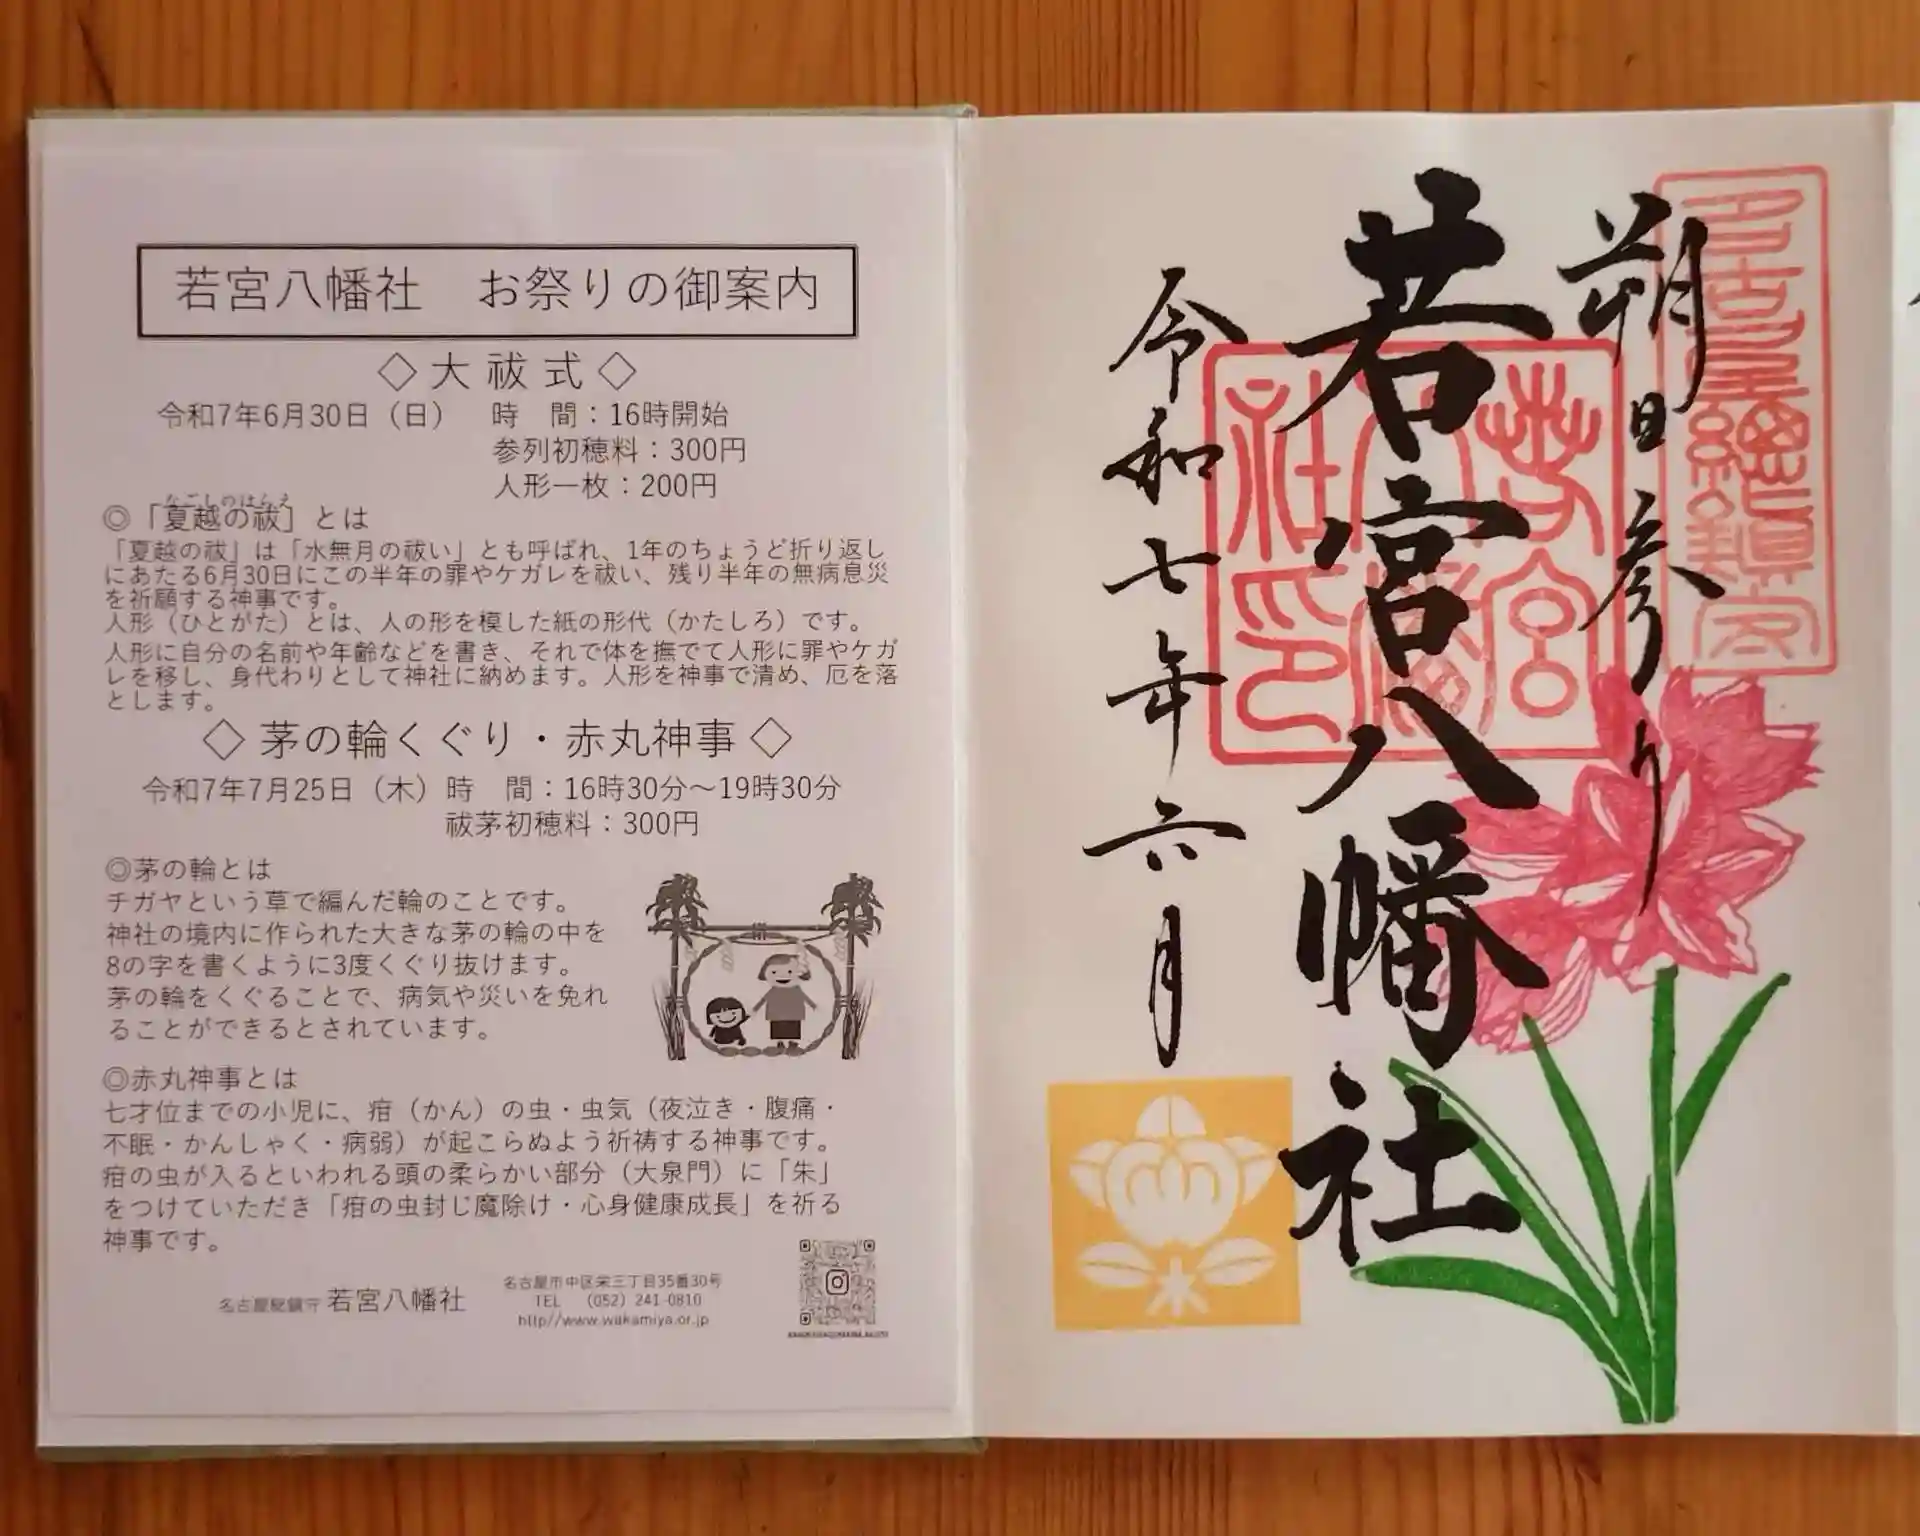 若宮八幡社　お祭りの御案内
◇ 大 祓 式 ◇
令和7年6月30日（日）　時　間：16時開始
参列初穂料：300円
人形一枚：200円
なごしのはらえ
◎「夏越の祓］とは
「夏越の祓」は「水無月の祓い」とも呼ばれ、1年のちょうど折り返し
にあたる6月30日にこの半年の罪やケガレを祓い、残り半年の無病息災
を祈願する神事です。
人形（ひとがた）とは、人の形を模した紙の形代（かたしろ）です。
人形に自分の名前や年齢などを書き、それで体を撫でて人形に罪やケガ
レを移し、身代わりとして神社に納めます。人形を神事で清め、厄を落
とします。
◇ 茅の輪くぐり・赤丸神事 ◇
令和7年7月25日（木）時　間：16時30分～19時30分
祓茅初穂料：300円
◎茅の輪とは
チガヤという草で編んだ輪のことです。
神社の境内に作られた大きな茅の輪の中を
8の字を書くように3度くぐり抜けます。
茅の輪をくぐることで、病気や災いを免れ
ることができるとされています。
◎赤丸神事とは
七才位までの小児に、疳（かん）の虫・虫気（夜泣き・腹痛・
不眠・かんしゃく・病弱）が起こらぬよう祈祷する神事です。
疳の虫が入るといわれる頭の柔らかい部分（大泉門）に「朱」
をつけていただき「疳の虫封じ魔除け・心身健康成長」を祈る
神事です。
名古屋総鎮守 若宮八幡社
名古屋市中区栄三丁目35番30号
TEL　（052）241-0810
http//www.wakamiya.or.jp
名古屋總鎮守
朔日参り
若宮八幡社
若宮八幡社印
令和七年六月